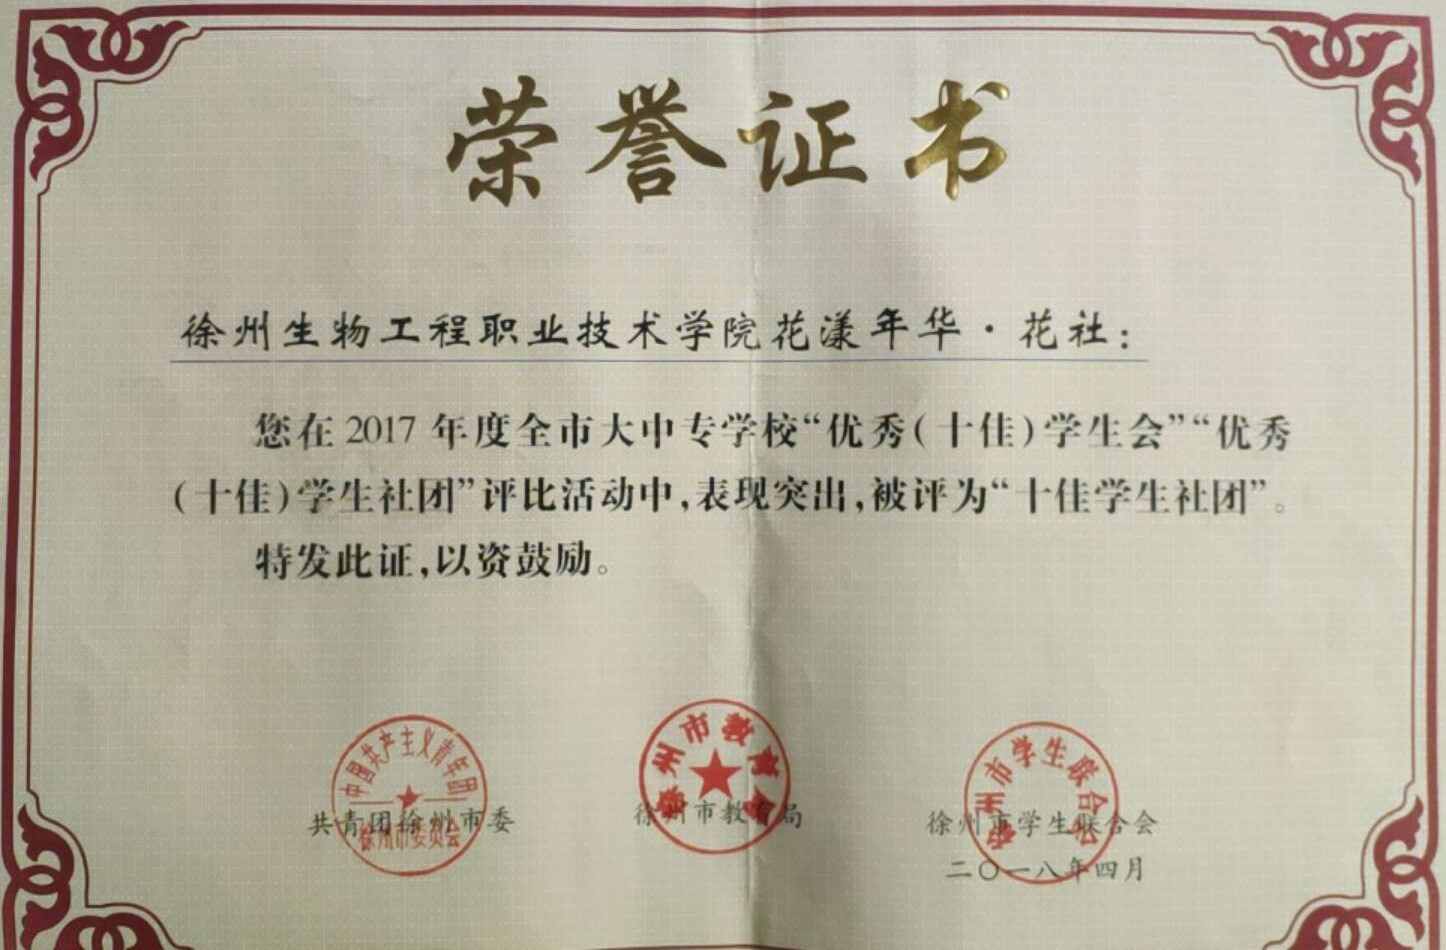 荣誉证书
徐州生物工程职业技术学院花漾年华·花社：
您在2017年度全市大中专学校“优秀(十佳)学生会”“优秀
(十佳)学生社团”评比活动中,表现突出,被评为“十佳学生社团”。
特发此证,以资鼓励。
中国共产主义青年团
徐州市委员会
徐州市教育局
徐州市学生联合会
共青团徐州市委 徐州市教育局 徐州市学生联合会
二〇一八年四月